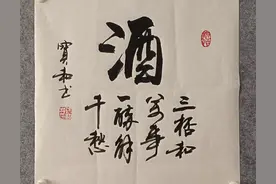 酒
三杯和
万事
一醉解
千愁
寶和书